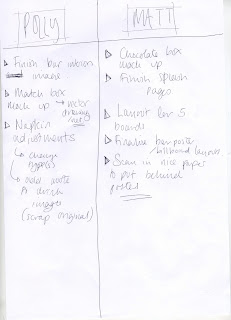 POLLY
▷ Finish bar interior
image
▷ Match box
mock up → vector
drawing
net
▷ Napkin
adjustments
↳ change
type(s)
↳ add quote
& drink
images
(scrap original)
MATT
▷ Chocolate box
mock up
▷ Finish splash
pages
▷ Layout for 5
boards
▷ Finalise bar poster
/billboard layouts
▷ Scan in nice paper
& put behind
posters